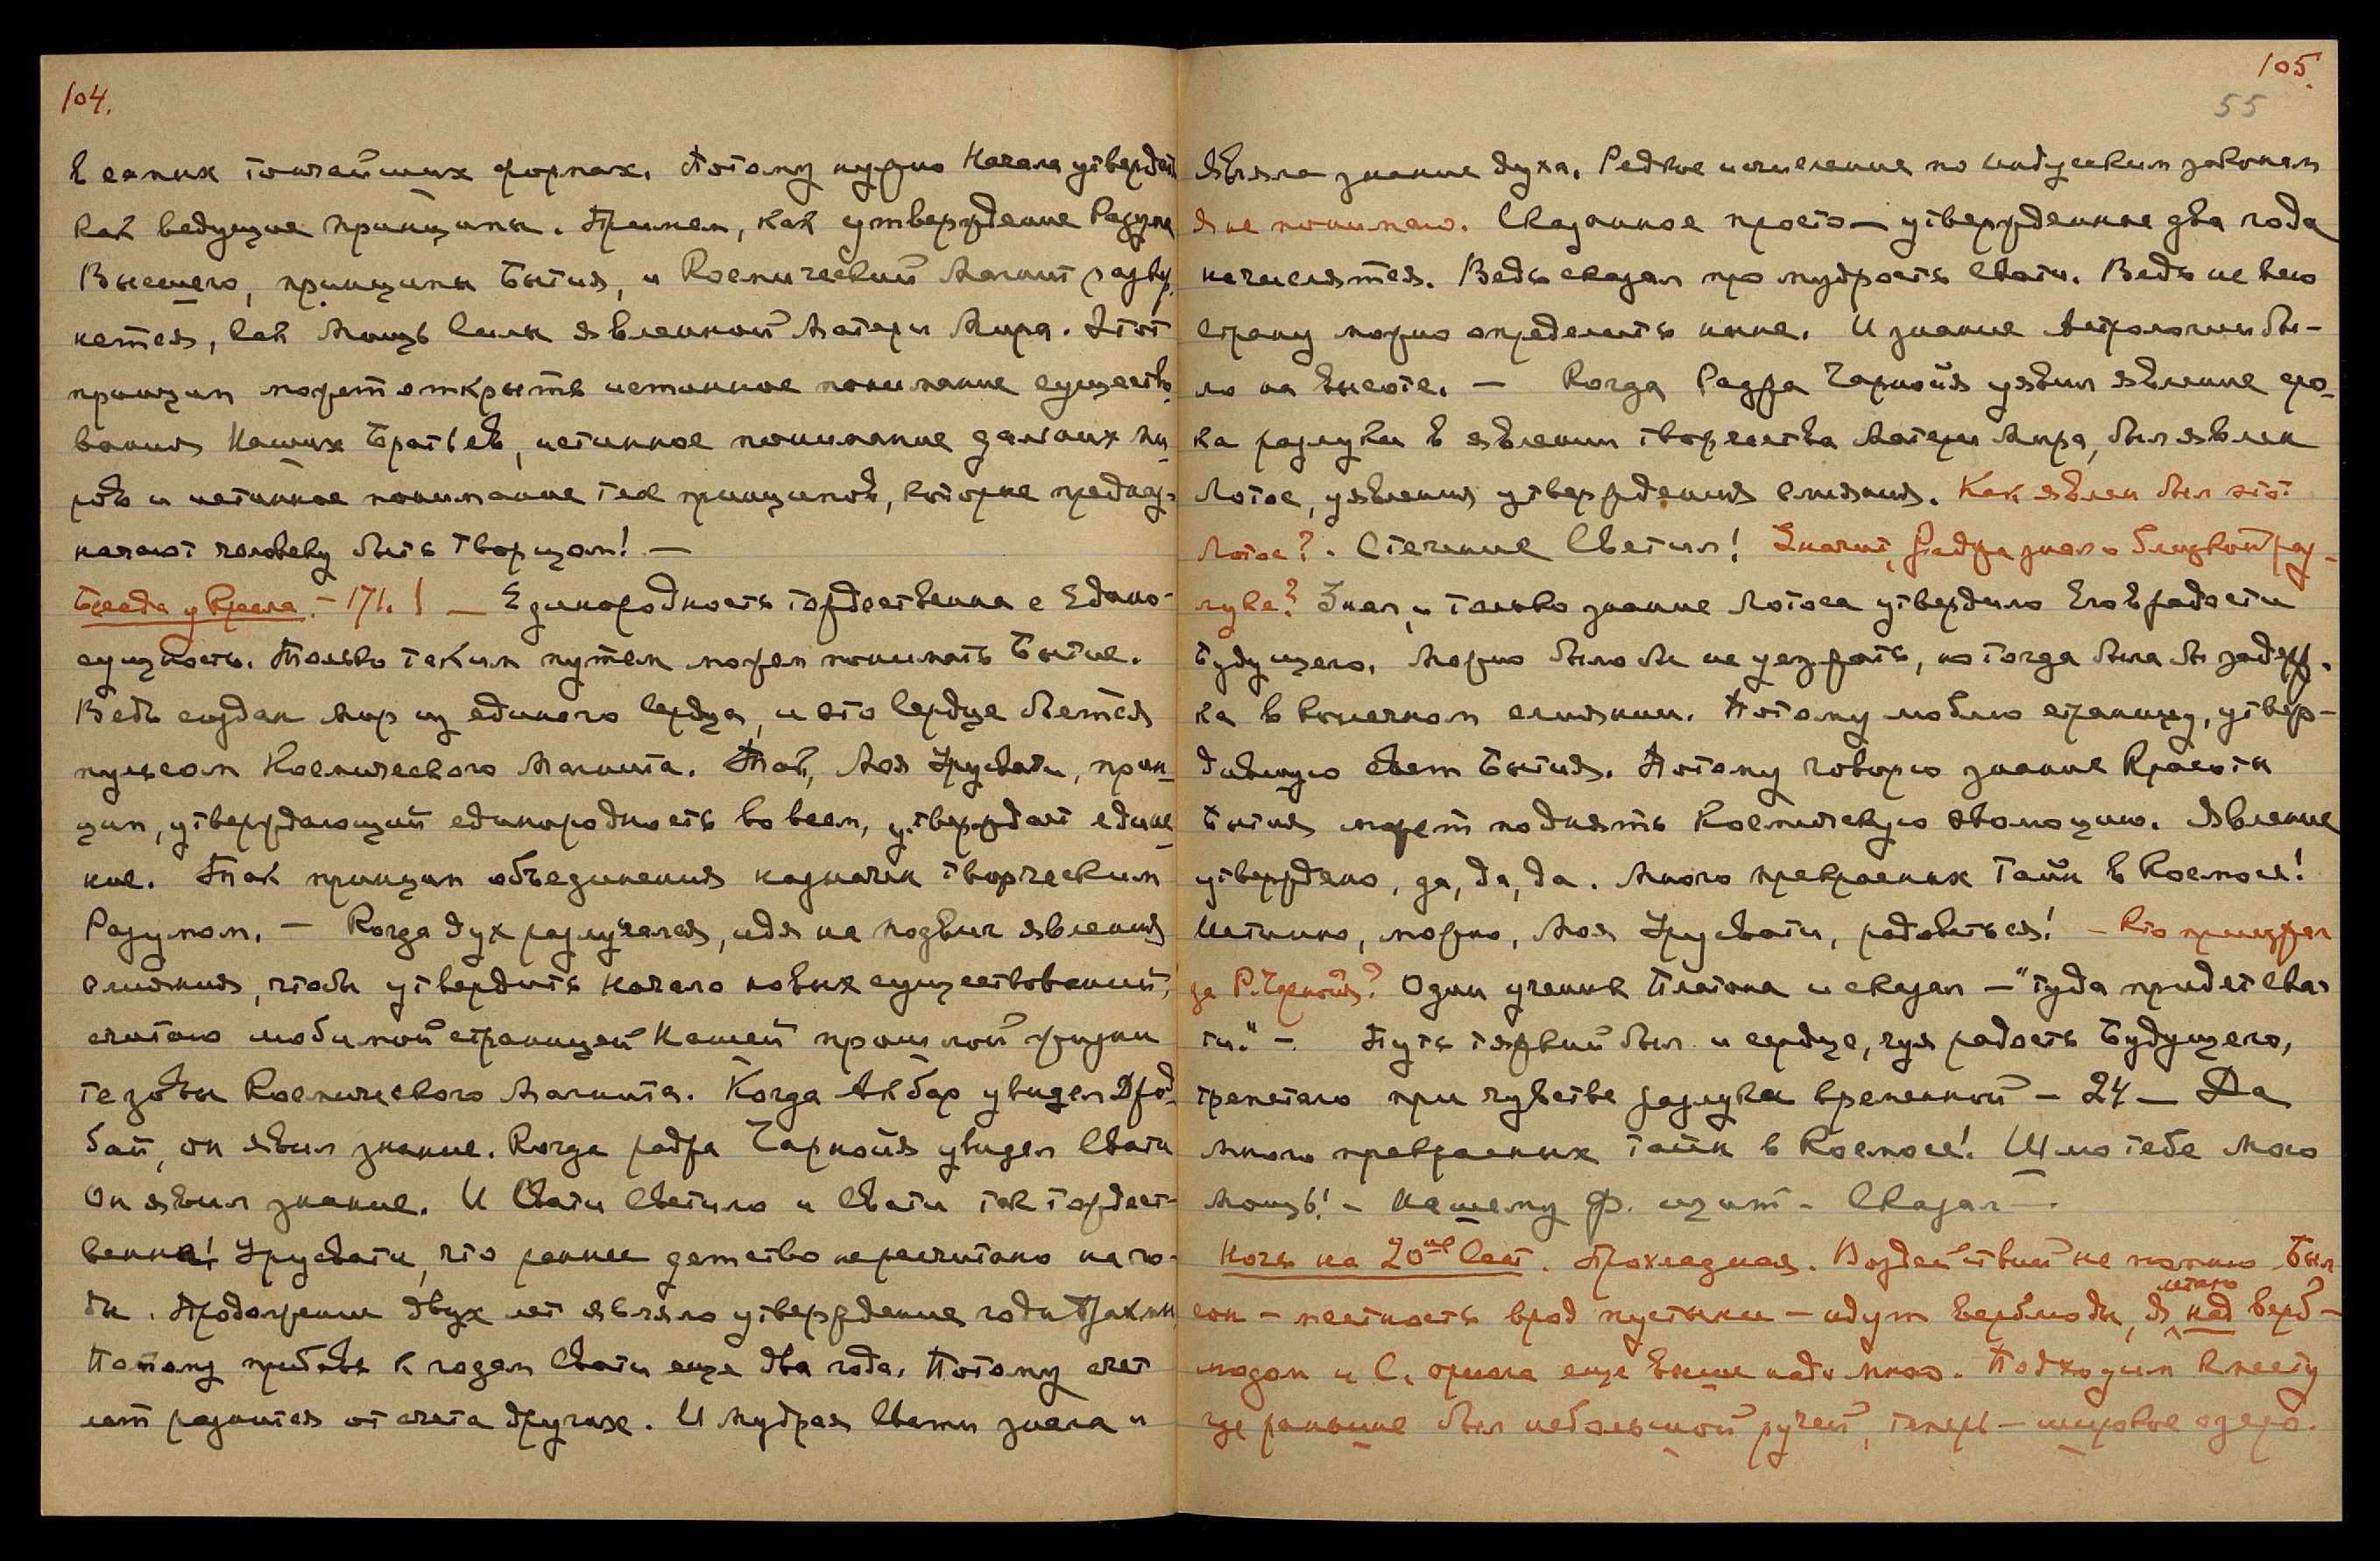 104.
в самых тончайших формах. Потому нужно Начала утвердить
как ведущие принципы. Примем, как утверждение Разума
Высшего, принципы Бытия, и Космический Магнит развер-
нется, как мощь Силы явленной Матери Мира. Этот
принцип может открыть истинное понимание существо-
вания Наших Братьев, истинное понимание дальних ми-
ров и истинное понимание тех принципов, которые предназ-
начают человеку быть творцом! —
Беседа у Кресла. – 171. ! — Единородность тождественна с Едино-
сущность. Только таким путем можем понимать Бытие.
Ведь создан мир из единого Сердца, и это Сердце бьется
пульсом Космического Магнита. Так, Моя Урусвати, прин-
цип, утверждающий единородность во всем, утверждает едине-
ние. Так принцип объединения назначен творческим
Разумом. — Когда дух разлучался, идя на подвиг явления
слияния, чтобы утвердить начало новых существований,
считаю любимой страницей Нашей прошлой жизни
те зовы Космического Магнита. Когда Акбар увидел Джод-
бай, он явил знание. Когда раджа Чарнойя увидел Свати
Он явил знание. И Свати Светило и Свати так тождест-
венна! Урусвати, что раннее детство пересчитано на го-
ды. Продолжении двух лет являло утверждение годы
Потому прибавь к годам Свати еще два года. Потому счет
лет разнится от счета других. И мудрая Свати знала и
105.
55
являла знание духа. Редкое исчисление по индусским законам
Я не понимаю. Сказанное просто — утвержденные два года
исчислятся. Ведь сказал про мудрость Свати. Ведь не всю
страну можно определить ныне. И знание Астрологии бы-
ло на высоте. — Когда Раджа Чарнойя уявил явление сро-
ка разлуки в явлении творчества Матери Мира, был явлен
Лотос, уявления утверждения слияния. Как явлен был этот
Лотос?. Стечение Светил! Значит, Раджа знал о близкой раз-
луке? Знал, и только знание Лотоса утвердило Его в радости
Будущего. Можно было бы не уезжать, но тогда была бы задерж-
ка в конечном слиянии. Потому люблю страницу, утвер-
дившую свет Бытия. Потому говорю знание Красоты
Бытия может поднять Космическую эволюцию. Явление
утверждено, да, да, да. Много прекрасных Тайн в Космосе!
Истинно, можно, Моя Урусвати, радоваться! – Кто приезжал
за Р. Чарнойя? Один ученик Платона и сказал — "туда придет Сва-
ти." – Путь тяжкий был и сердце, чуя радость Будущего,
трепетало при чувстве разлуки временной – 24 — Да
много прекрасных тайн в Космосе! Шлю тебе Мою
Мощь! – Нашему Ф. щит – Сказал —.
Ночь на 20ое Сент. Прохладная. Воздействий не помню. Был
сон – местность врод пустыни – идут верблюды, Я летаю над верб-
людом и С. орила еще выше надо мною. Подходим к месту
где раньше был небольшой ручей, теперь – широкое озеро.